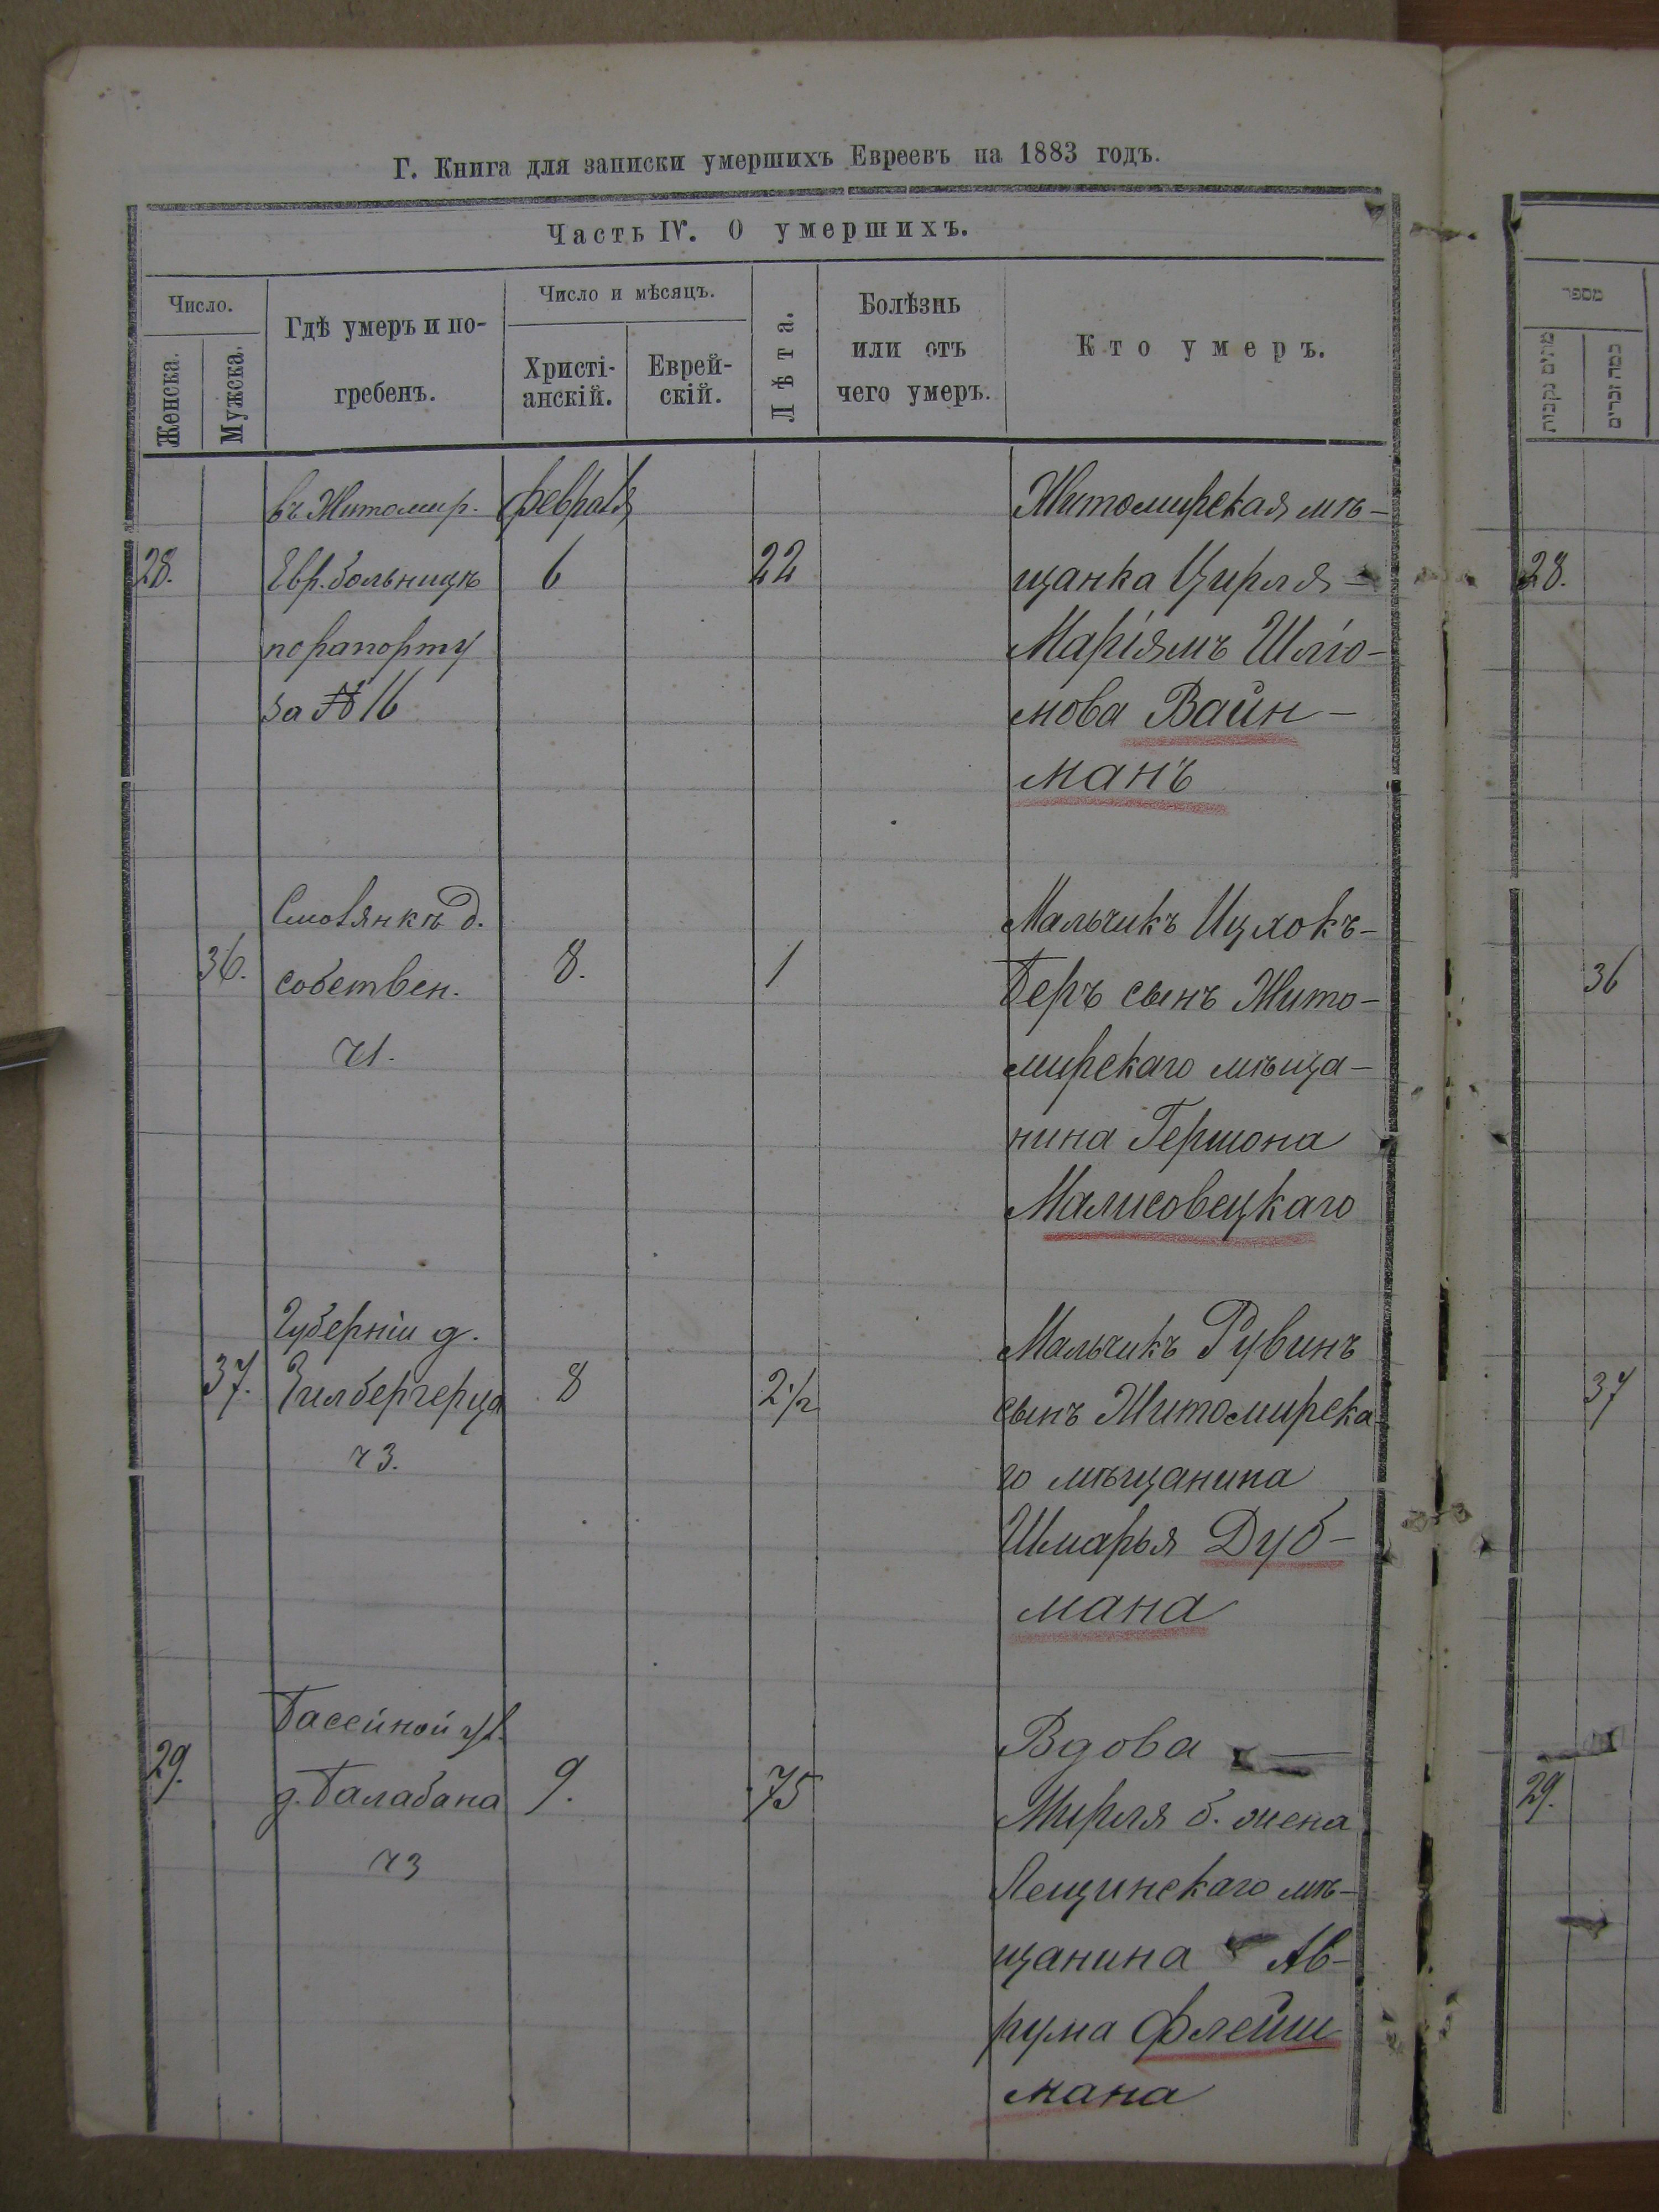 Г. Книга для записки умершихъ Евреевъ на 1883 годъ.
Часть IV. О умершихъ.
Число.
Женска.
Мужска.
Гдѣ умеръ и по-
гребенъ.
Число и мѣсяцъ.
Христі-
анскій.
Еврей-
скій.
Лѣта.
Болѣзнь
или отъ
чего умеръ.
Кто умеръ.
מספר
מתים נקבות
כמה זכרים
28.
въ Житомир.
Евр. больницѣ
по рапорту
за № 16
февраля
6
22
Житомирская мѣ-
щанка Цирля -
Маріямъ Шлю-
мова Вайн-
манъ
28.
36.
Смолянкѣ д.
собствен.
ч1.
8.
1
Мальчикъ Ицхокъ-
Беръ сынъ Жито-
мирскаго мѣща-
нина Гершона
Малисовецкаго
36
37.
Губерніи д.
Зилбергерца
ч3.
8
2 1/2
Мальчикъ Рувинъ
сынъ Житомирска-
го мѣщанина
Шмарья Дуб-
мана
37
29.
Басейной ул.
д. Балабана
ч3
9.
75
Вдова
Мирля б. жена
Лещинскаго мѣ-
щанина Ав-
рума Флейш
мана
29.